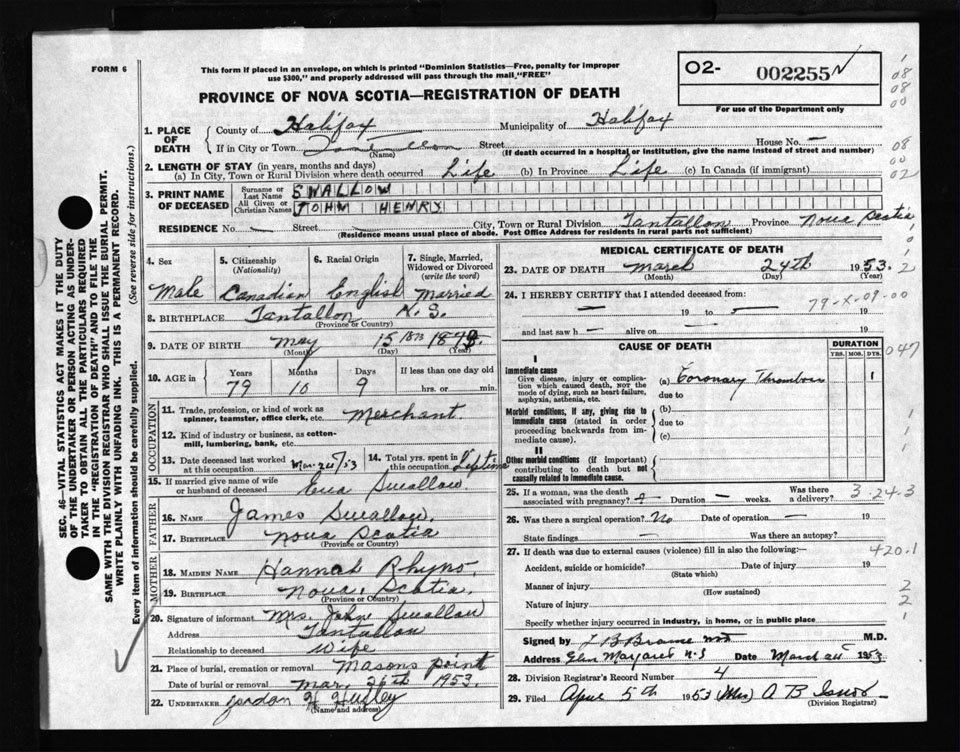 FORM 6
This form if placed in an envelope, on which is printed "Dominion Statistics—Free, penalty for improper
use $300," and properly addressed will pass through the mail, "FREE"
PROVINCE OF NOVA SCOTIA—REGISTRATION OF DEATH
O2- 002255
For use of the Department only
1. PLACE OF DEATH
County of Halifax Municipality of Halifax
If in City or Town Street House No. —
(Name) (If death occurred in a hospital or institution, give the name instead of street and number)
2. LENGTH OF STAY (in years, months and days)
(a) In City, Town or Rural Division where death occurred Life (b) In Province Life (c) In Canada (if immigrant)
3. PRINT NAME OF DECEASED
Surname or Last Name SWALLOW
All Given or Christian Names JOHM HENRY
RESIDENCE No. — Street — City, Town or Rural Division Tantallon Province Nova Scotia
(Residence means usual place of abode. Post Office Address for residents in rural parts not sufficient)
4. Sex Male
5. Citizenship (Nationality) Canadian
6. Racial Origin English
7. Single, Married, Widowed or Divorced (write the word) Married
8. BIRTHPLACE Tantallon N.S.
(Province or Country)
9. DATE OF BIRTH May 15 1873
(Month) (Day) (Year)
10. AGE in Years Months Days If less than one day old
79 10 9 hrs. or min.
OCCUPATION
11. Trade, profession, or kind of work as spinner, teamster, office clerk, etc. Merchant.
12. Kind of industry or business, as cotton-mill, lumbering, bank, etc.
13. Date deceased last worked at this occupation Mar. 24/53
14. Total yrs. spent in this occupation Lifetime
15. If married give name of wife or husband of deceased Swallow
FATHER
16. NAME James Swallow.
17. BIRTHPLACE Nova Scotia
(Province or Country)
MOTHER
18. MAIDEN NAME Hannah Rhyno.
19. BIRTHPLACE Nova Scotia
(Province or Country)
20. Signature of informant Mrs. John Swallow
Address Tantallon
Relationship to deceased Wife
21. Place of burial, cremation or removal Masons point
Date of burial or removal Mar. 26th 1953.
22. UNDERTAKER Jordan H
(Name and address)
SEC. 46—VITAL STATISTICS ACT MAKES IT THE DUTY
OF THE UNDERTAKER OR PERSON ACTING AS UNDER-
TAKER TO OBTAIN ALL THE PARTICULARS REQUIRED
IN THE "REGISTRATION OF DEATH" AND TO FILE THE
SAME WITH THE DIVISION REGISTRAR WHO SHALL ISSUE THE BURIAL PERMIT.
WRITE PLAINLY WITH UNFADING INK. THIS IS A PERMANENT RECORD.
Every item of information should be carefully supplied. (See reverse side for instructions.)
MEDICAL CERTIFICATE OF DEATH
23. DATE OF DEATH March 24th 1953.
(Month) (Day) (Year)
24. I HEREBY CERTIFY that I attended deceased from:
— 19 to — 19
and last saw h — alive on —
79-X-09-00
CAUSE OF DEATH
DURATION
YRS. MOS. DYS.
047
I
Immediate cause
Give disease, injury or complication which caused death, NOT the mode of dying, such as heart failure, asphyxia, asthenia, etc.
(a) Coronary Thrombosis 1
due to
Morbid conditions, if any, giving rise to immediate cause (stated in order proceeding backwards from immediate cause).
(b)
due to
(c)
II
Other morbid conditions (if important) contributing to death but not causally related to immediate cause.
25. If a woman, was the death associated with pregnancy? Duration — weeks. Was there a delivery?
3.24.3
26. Was there a surgical operation? No Date of operation — 19
State findings — Was there an autopsy?
27. If death was due to external causes (violence) fill in also the following:—
420.1
Accident, suicide or homicide? Date of injury 19
(State which)
Manner of injury
(How sustained)
Nature of injury
Specify whether injury occurred in industry, in home, or in public place
Signed by M.D.
Address Glen Margaret N.S Date March 24 1953
28. Division Registrar's Record Number 4
29. Filed April 5th 1953 (Mrs) A B
(Division Registrar)